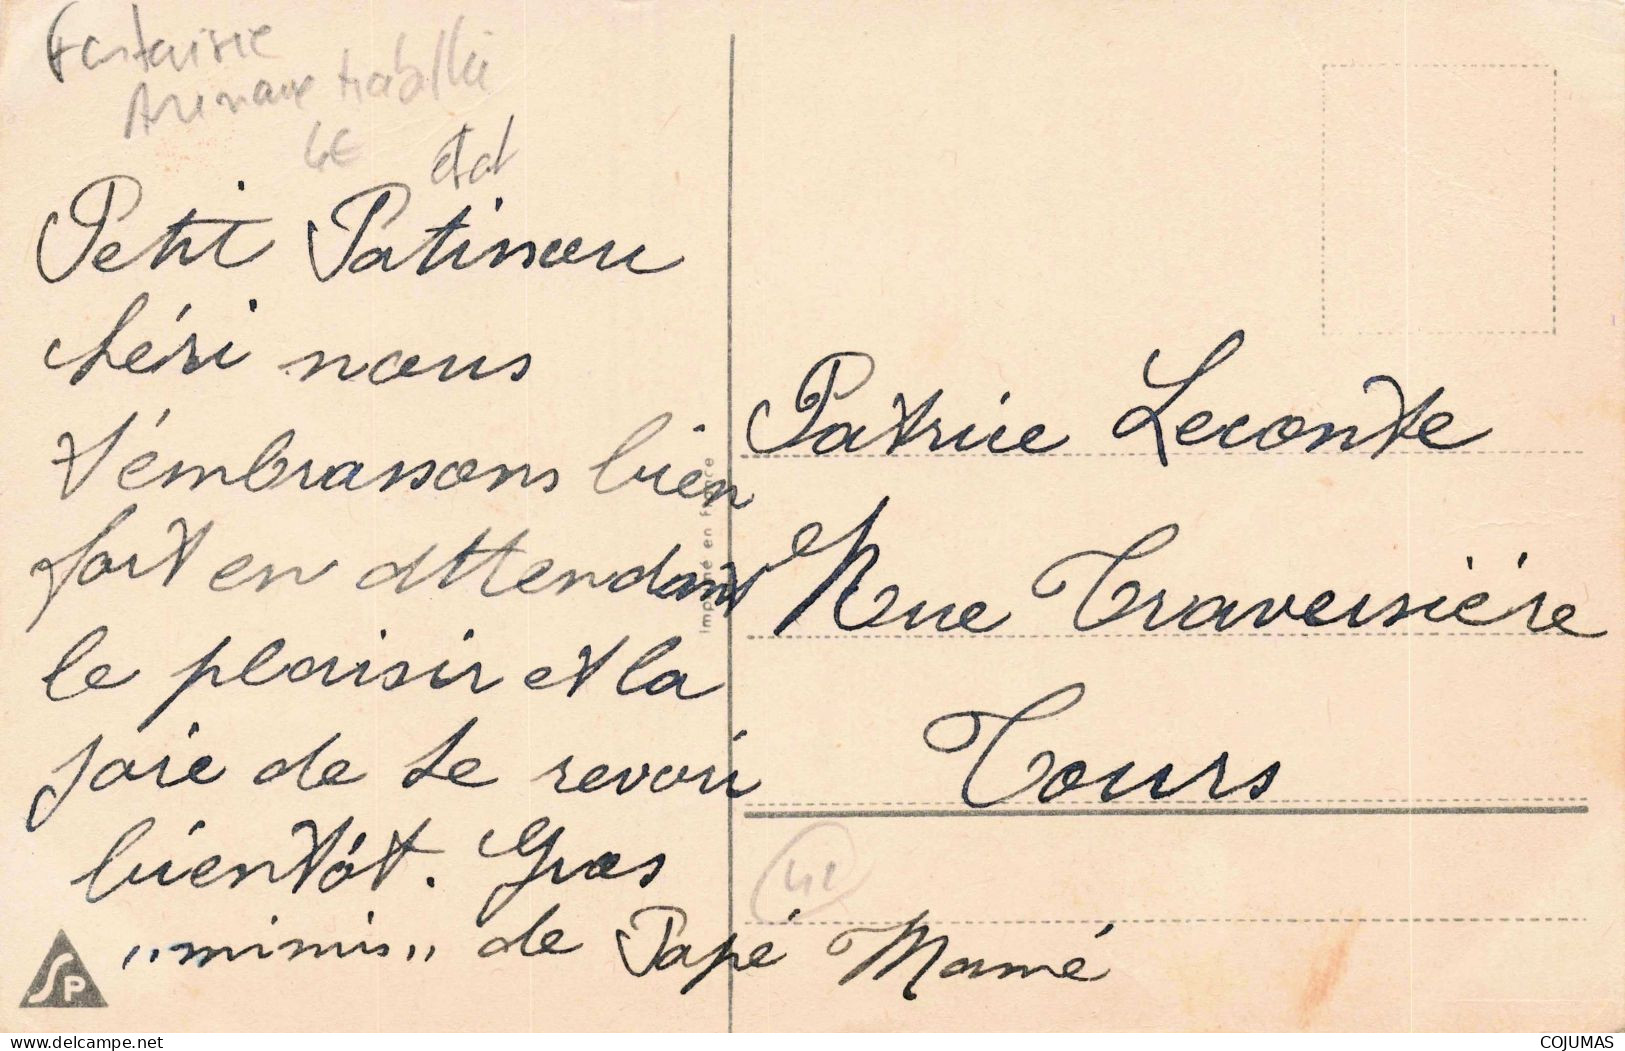 Fantaisie
Animaux habillé
4€
etat
Petit Patinou
chéri nous
t'émbrassons bien
fort en attendant
le plaisir et la
joie de te revoir
bientôt. Gros
"mimis" de Papé Mamé
Imprimé en France
Patrice Leconte
Rue Traversière
Tours
41
SP
www.delcampe.net
COJUMAS